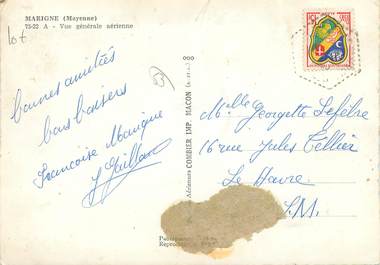 MARIGNE (Mayenne)
75-22 A - Vue générale aérienne
lot
53
bonnes amitiés
bons baisers
Françoise Monique
J Guillard
COMBIER IMP. MACON
Mlle Georgette Lefèbre
16 rue Jules Tellier
Le Havre
S.M.